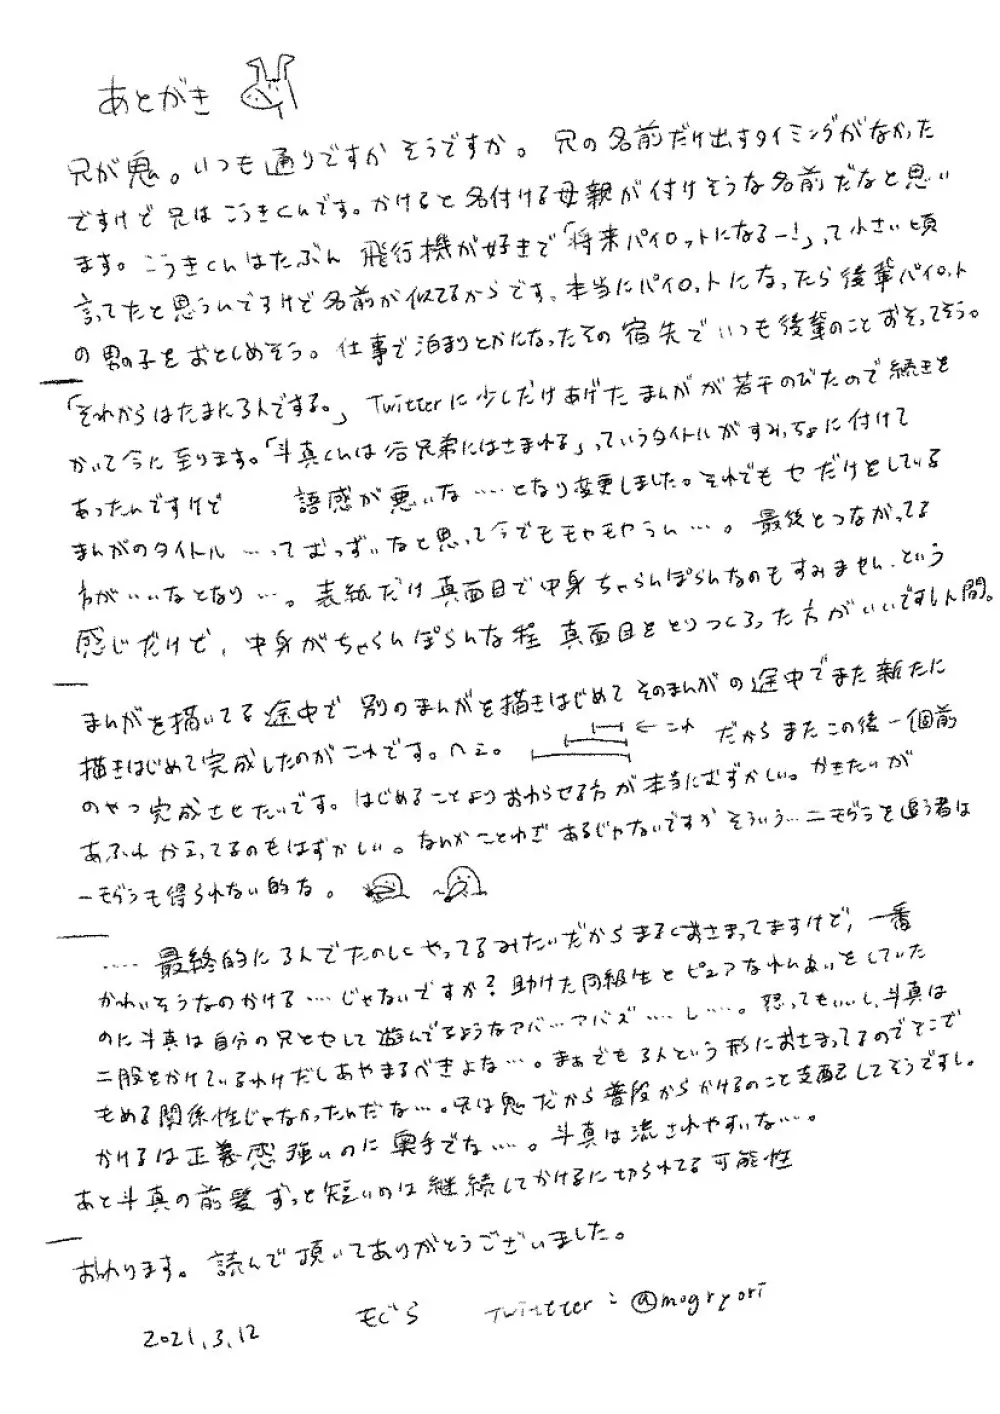 あとがき
兄が鬼。いつも通りですかそうですか。兄の名前だけ出すタイミングがなかった
ですけど兄はこうきくんです。かけると名付ける母親が付けそうな名前だなと思い
ます。こうきくんはたぶん飛行機が好きで「将来パイロットになるー!」って小さい頃
言ってたと思うんですけど名前が似てるからです、本当にパイロットになったら後輩パイロット
の男の子をおとしめそう。仕事で泊まりとかになったその宿先でいつも後輩のことおそってそう。
「それからはたまに3人でする。」Twitterに少しだけあげたまんがが若干のびたので続きを
かいて今に至ります。「斗真くんは谷兄弟にはさまれる」っていうタイトルがすみっちょに付けて
あったんですけど 語感が悪いな……となり変更しました。それでもセだけをしている
まんがのタイトル…ってむっずいなと思って今でももやもやうん…。最後とつながってる
方がいいなとなり…。表紙だけ真面目で中身ちゃらんぽらんなのもすみません、という
感じだけど、中身がちゃらんぽらんな程真面目をとりつくろった方がいいですし人間。
まんがを描いてる途中で別のまんがを描きはじめてそのまんがの途中でまた新たに
描きはじめて完成したのがこれです。へぇ。 ← これ だからまたこの後一個前
のやつ完成させたいです。はじめることよりおわらせる方が本当にむずかしい。かきたいが
あふれかえってるのもはずかしい。なんかことわざあるじゃないですかそういう…二モグラを追う者は
一モグラも得られない的な。
……最終的に3人でたのしくやってるみたいだからまるくおさまってますけど、一番
かわいそうなのかける…じゃないですか?助けた同級生とピュアなれんあいをしていた
のに斗真は自分の兄とセして遊んでるようなアバ…アバズ……し…。怒ってもいいし、斗真は
二股をかけているわけだしあやまるべきよな…。まぁでも3人という形におさまってるのでそこで
もめる関係性じゃなかったんだな…。兄は鬼だから普段からかけるのこと支配してそうですし。
かけるは正義感強いのに奥手でな…。斗真は流されやすいな…。
あと斗真の前髪ずっと短いのは継続してかけるに切られてる可能性
おわります。読んで頂いてありがとうございました。
2021.3.12 もぐら Twitter:@mogryori